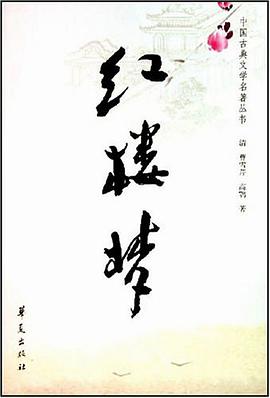 中国古典文学名著丛书
清 曹雪芹 高鹗 著
红楼梦
华夏出版社